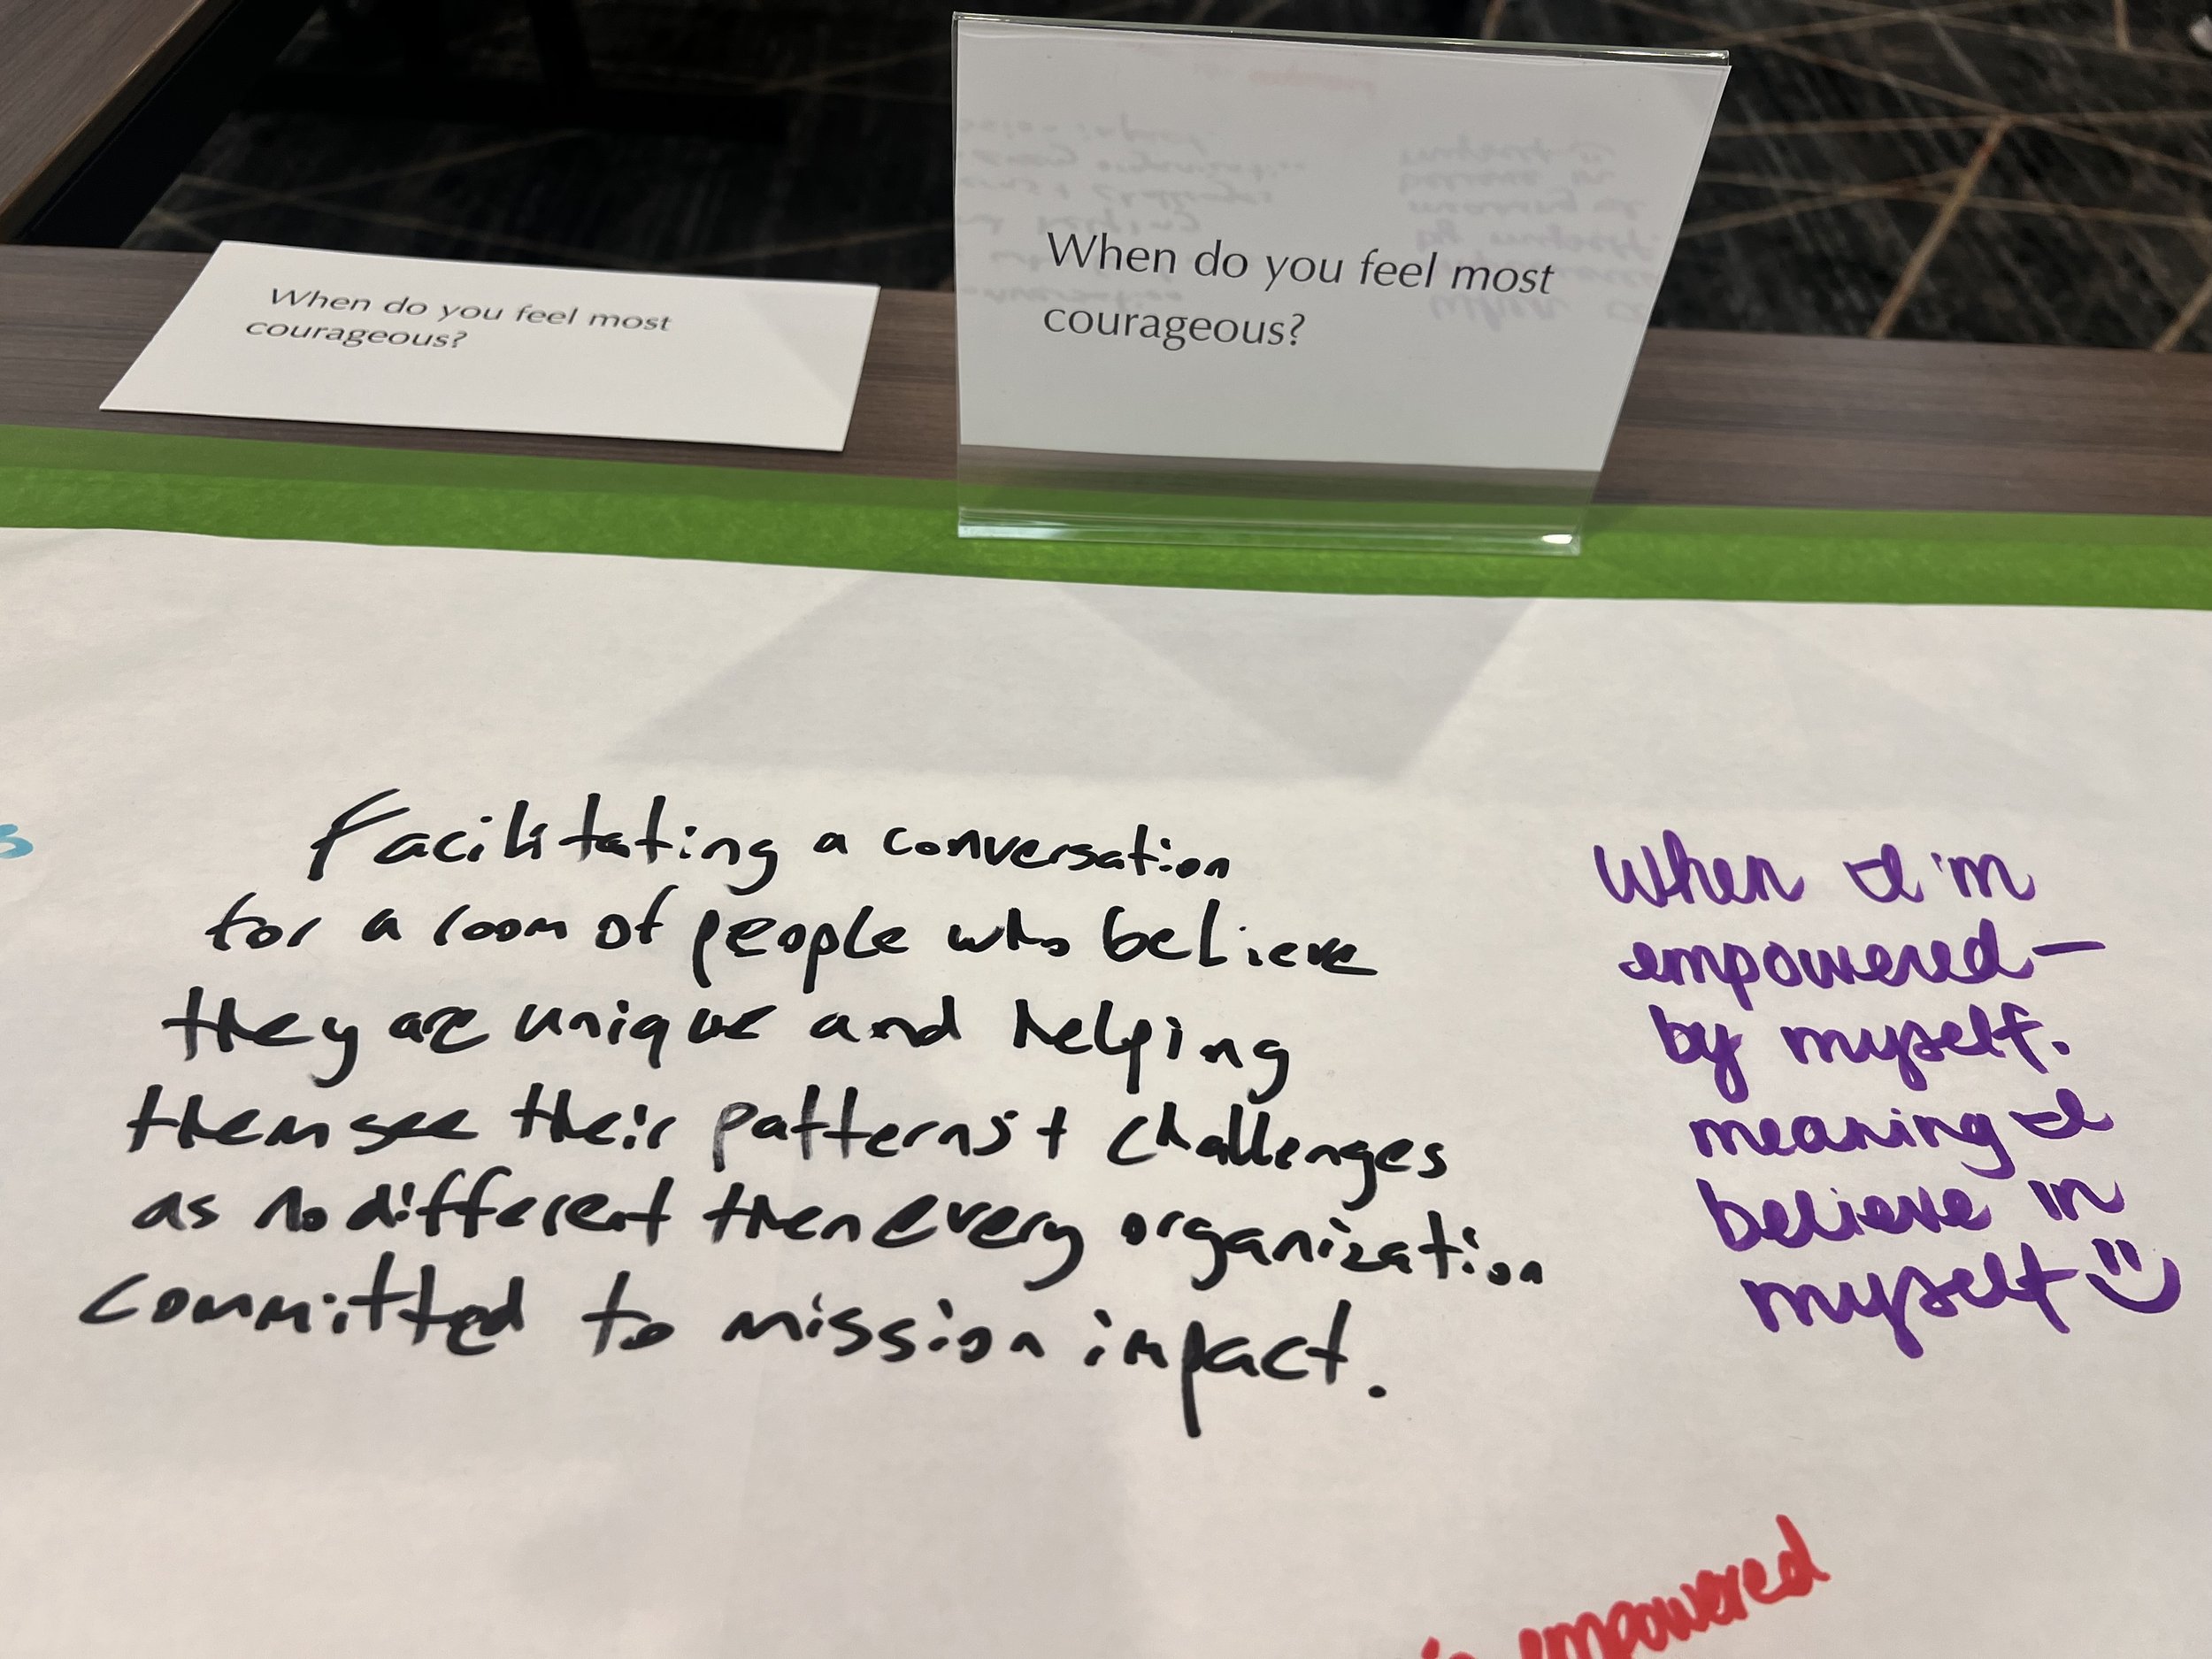 When do you feel most
courageous?
When do you feel most
courageous?
Facilitating a conversation
for a room of people who believe
they are unique and helping
them see their patterns + challenges
as no different then every organization
committed to mission impact.
When I'm
empowered—
by myself.
meaning I
believe in
myself
empowered